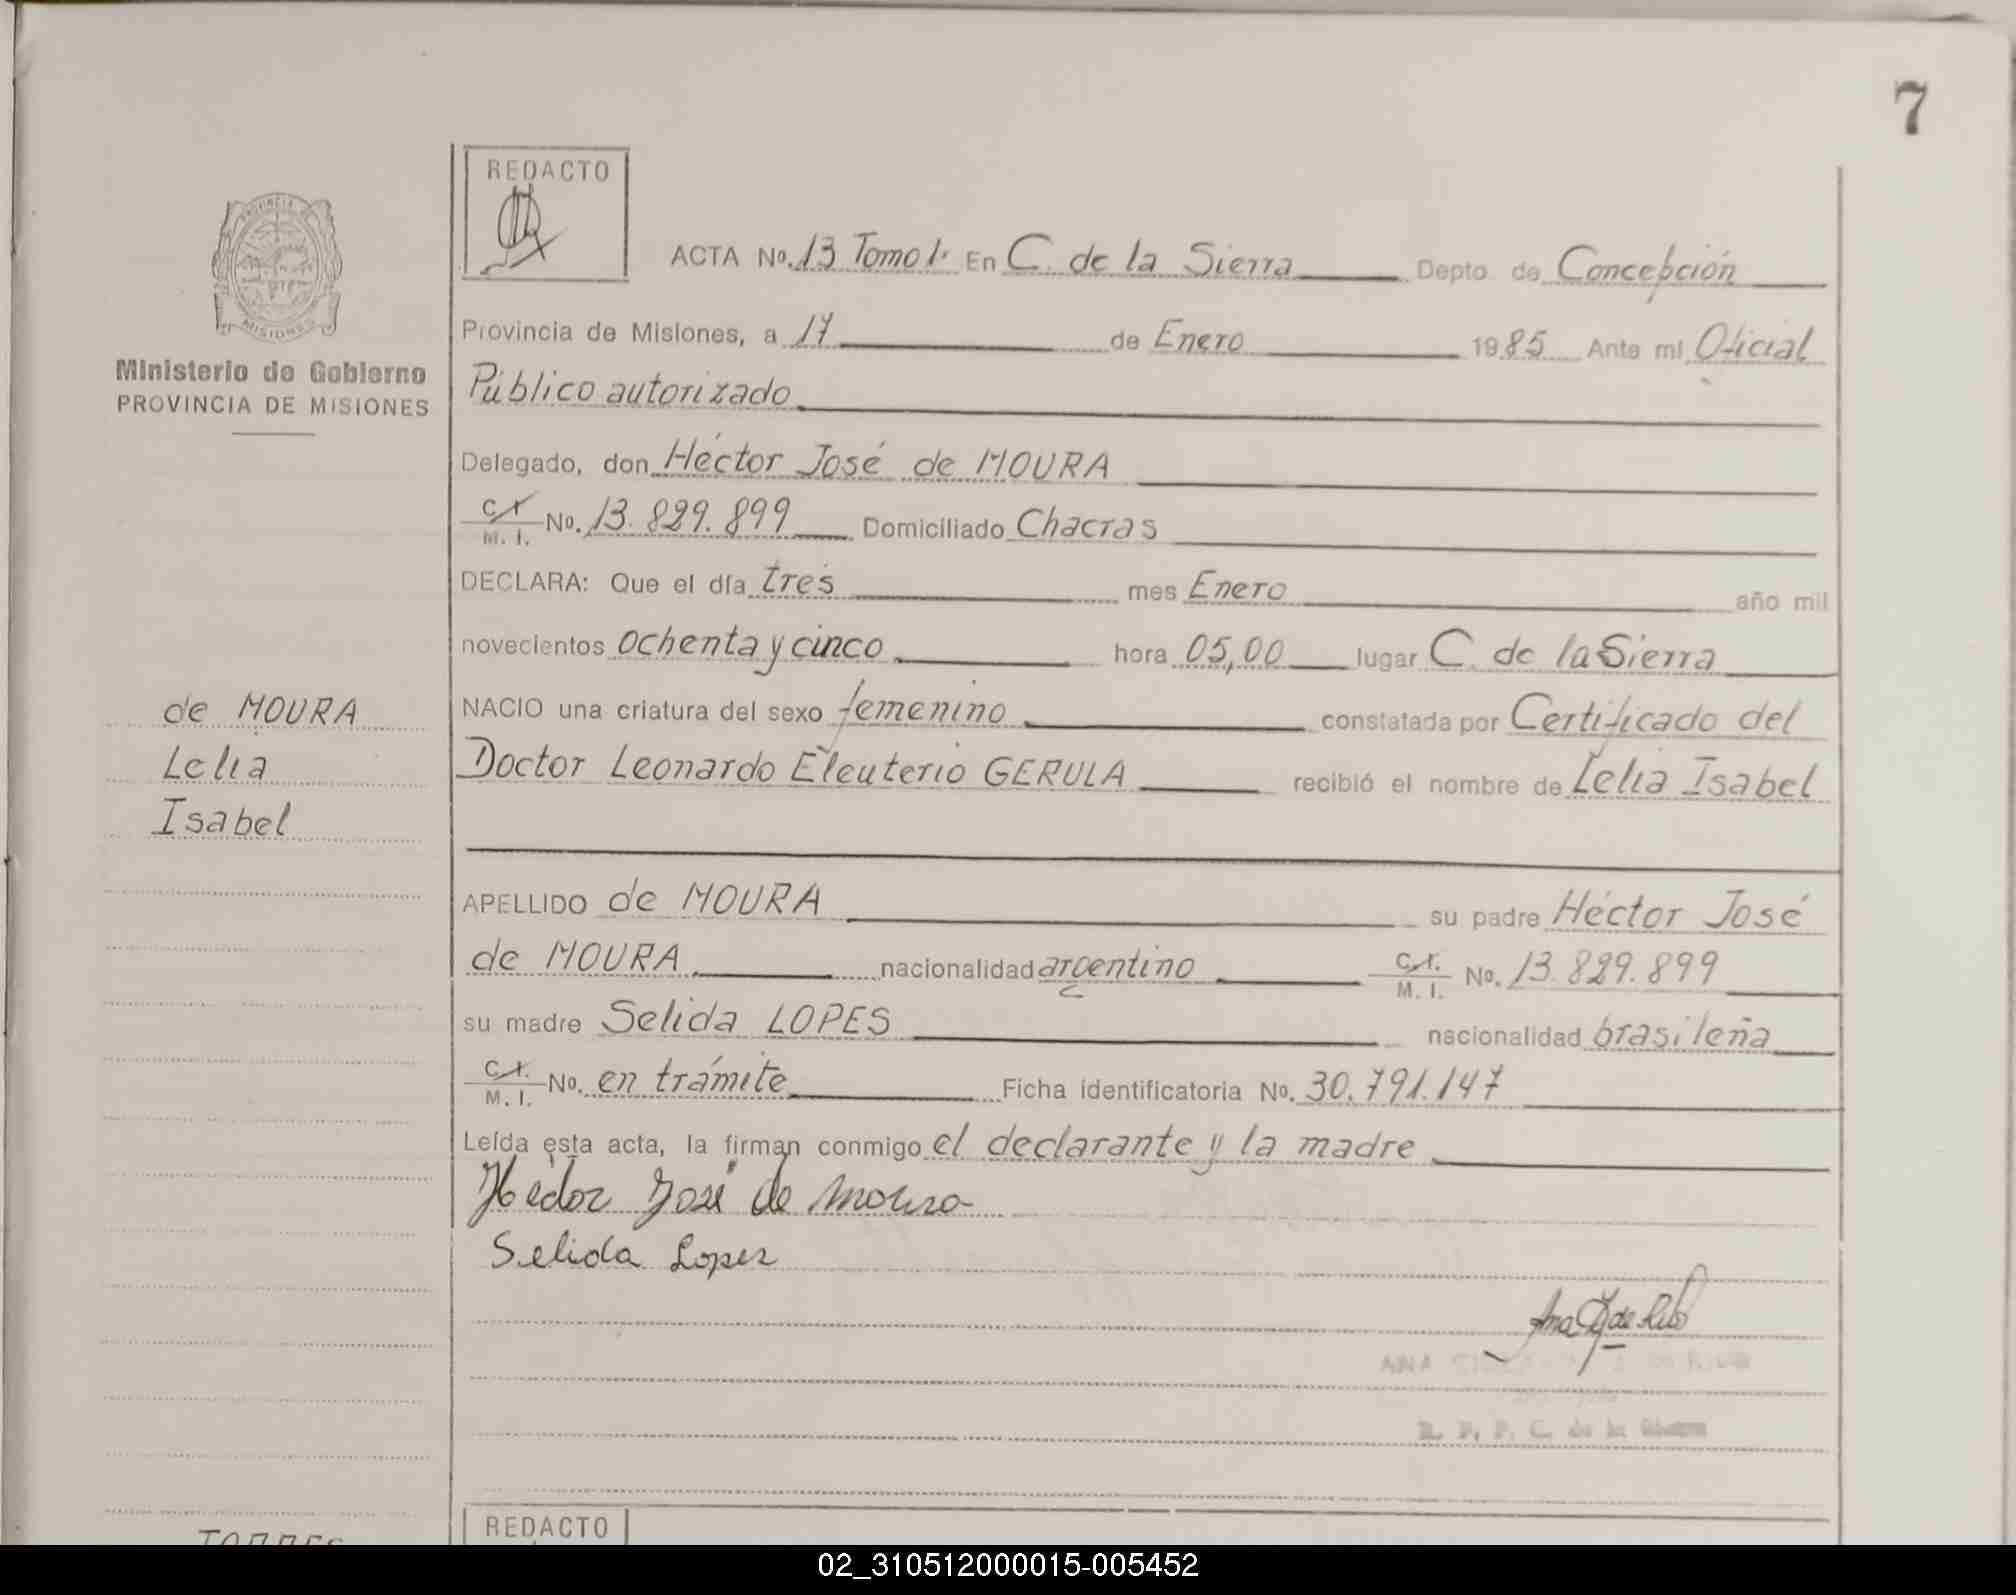 7
REDACTO
ACTA No. 13 Tomo 1º En C. de la Sierra Depto. de Concepción
Provincia de Misiones, a 17 de Enero 1985 Ante mí Oficial
Público autorizado
Delegado, don Héctor José de MOURA
C.I. M. I. No. 13.829.899 Domiciliado Chacras
DECLARA: Que el día tres mes Enero año mil
novecientos ochenta y cinco hora 05,00 lugar C. de la Sierra
NACIO una criatura del sexo femenino constatada por Certificado del
Doctor Leonardo Eleuterio GERULA recibió el nombre de Lelia Isabel
APELLIDO de MOURA su padre Héctor José
de MOURA nacionalidad argentino C.I. M. I. No. 13.829.899
su madre Selida LOPES nacionalidad brasileña
C.I. M. I. No. en trámite Ficha identificatoria No. 30.791.147
Leída esta acta, la firman conmigo el declarante y la madre
Héctor José de Moura
Selida Lopez
Ana de
ANA
C. de la Sierra
PROVINCIA DE
MISIONES
Ministerio de Gobierno
PROVINCIA DE MISIONES
de MOURA
Lelia
Isabel
REDACTO
TORRES
02_310512000015-005452